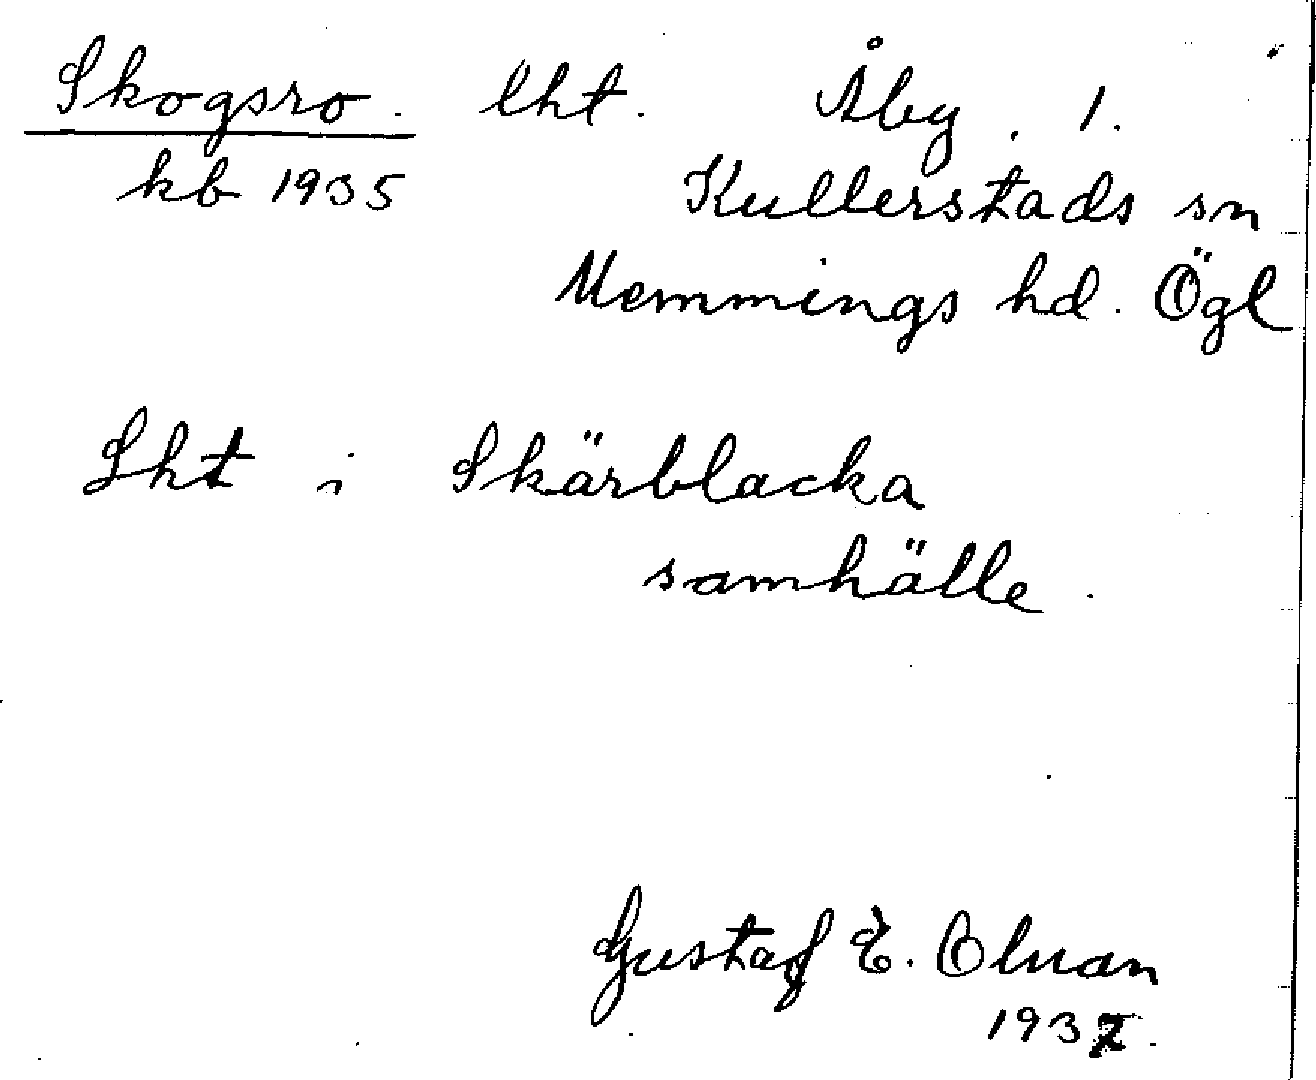 Skogsro. lht. Åby. 1.
kb 1935
Kullerstads sn
Memmings hd. Ögl
Lht i Skärblacka
samhälle.
Gustaf E. Olman
1937.